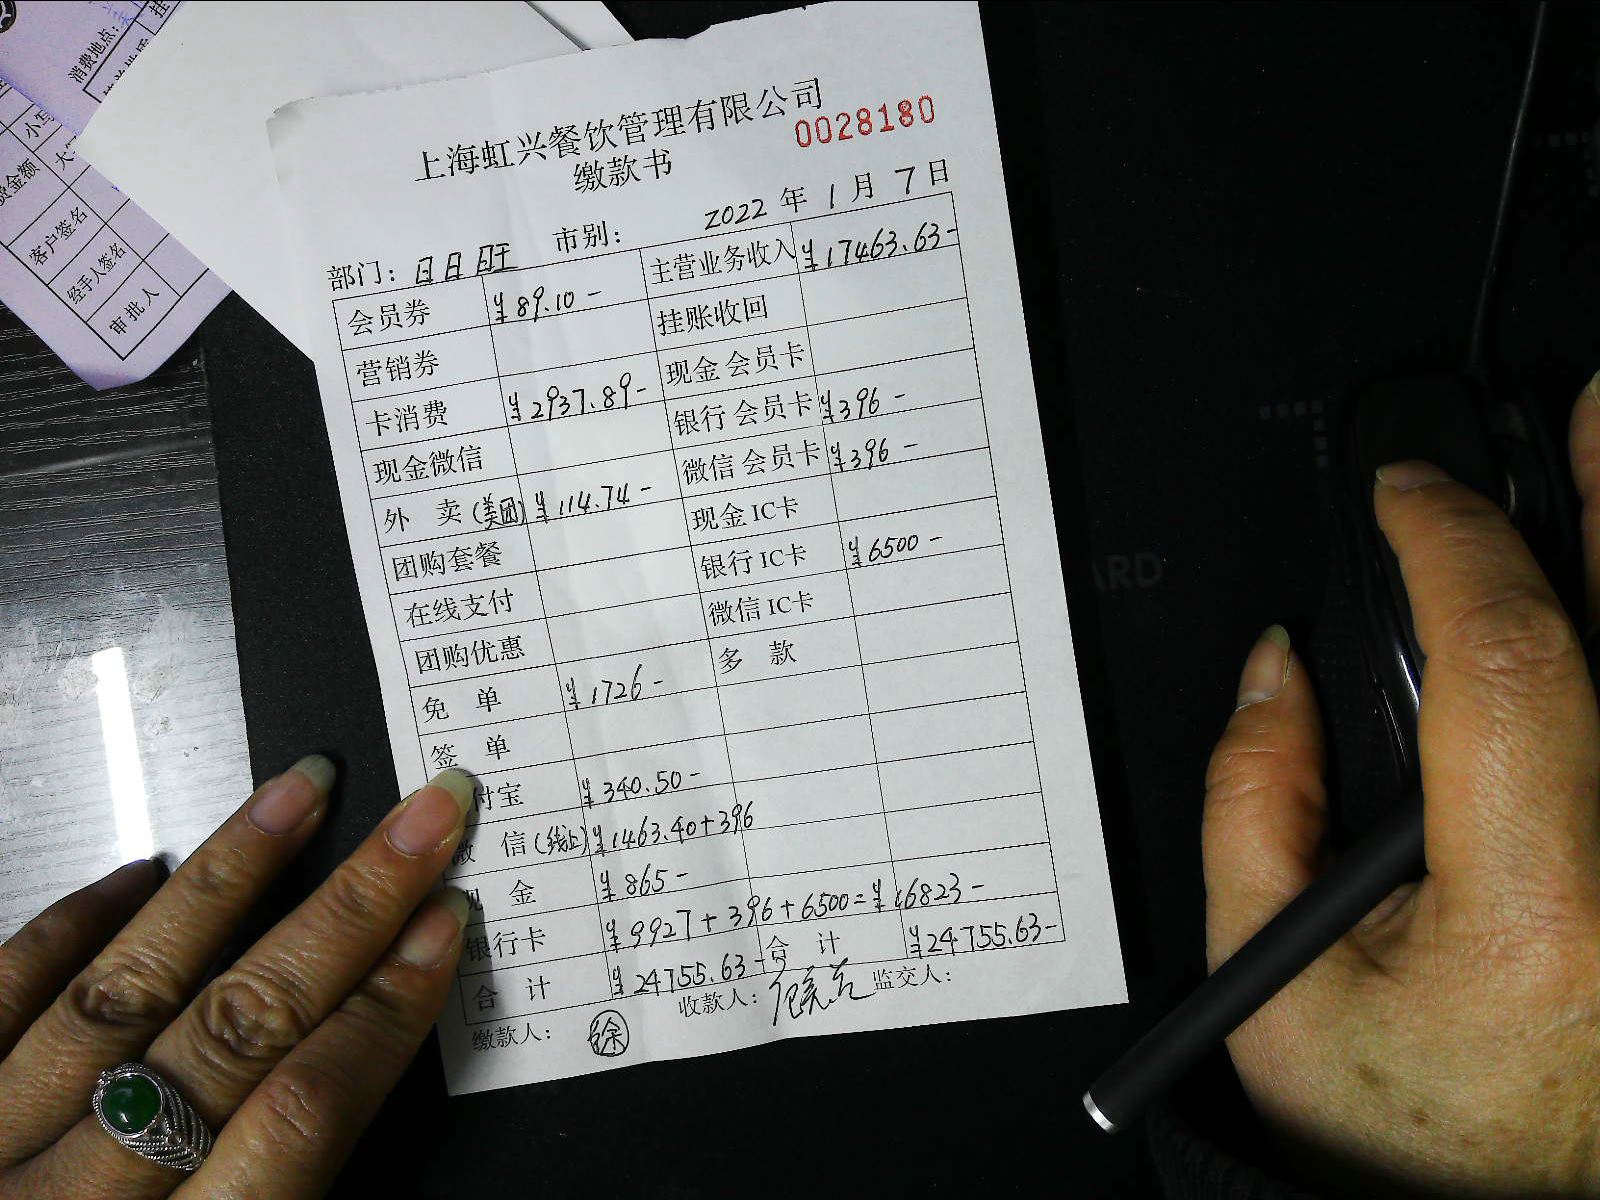 消费地点：
小写
费金额
客户签名
经手人签名
审批人
上海虹兴餐饮管理有限公司
缴款书
0028180
2022 年 1 月 7 日
部门： 日日旺 市别：
会员券 ¥89.10 - 主营业务收入 ¥17463.63-
营销券 挂账收回
卡消费 ¥2937.89- 现金会员卡
现金微信 银行会员卡 ¥396 -
外 卖(美团) ¥114.74 - 微信会员卡 ¥396 -
团购套餐 现金 IC卡
在线支付 银行 IC卡 ¥6500 -
团购优惠 微信 IC卡
免 单 ¥1726 - 多 款
签 单
付宝 ¥340.50-
微 信(线上) ¥1463.40+396
现 金 ¥865-
银行卡 ¥9927+396+6500=¥16823-
合 计 ¥24755.63- 合 计 ¥24755.63-
缴款人： 徐 收款人： 监交人：
ARD